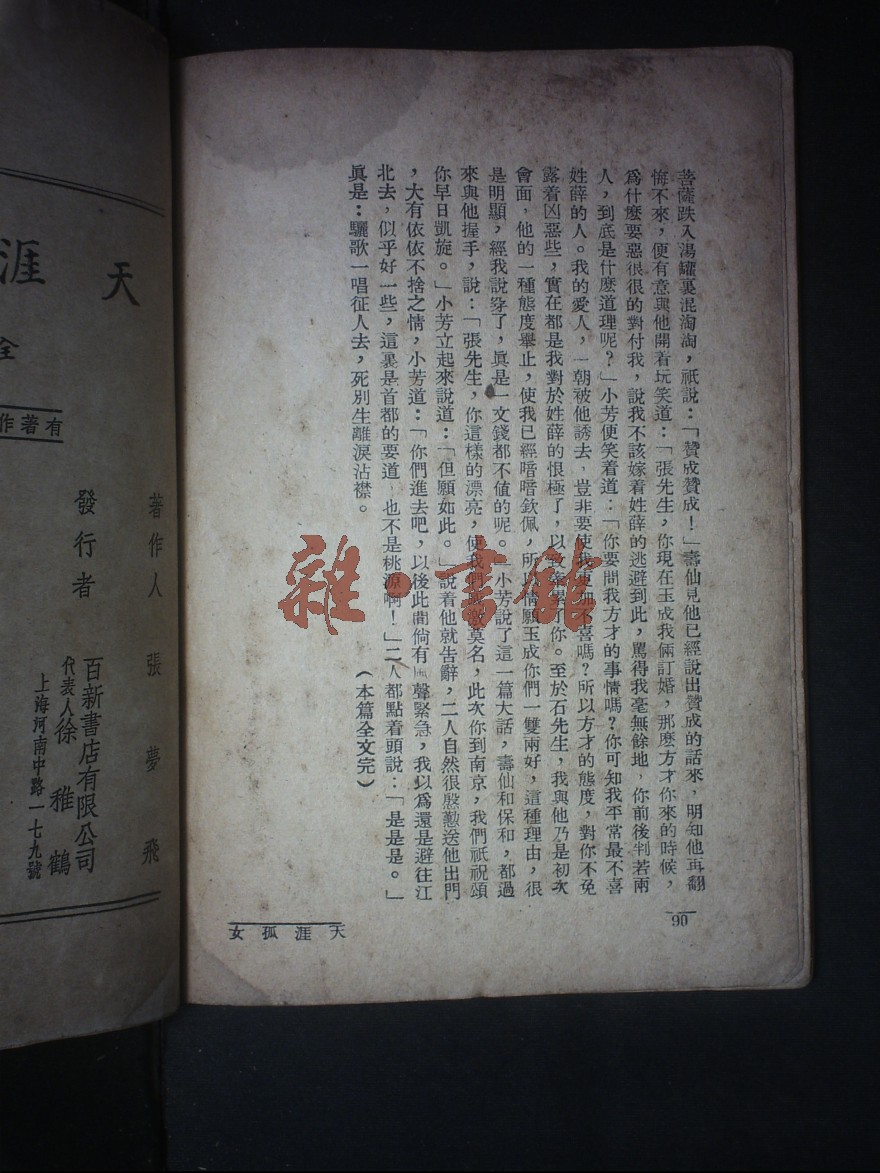 菩薩跌入湯罐裏混淘淘，祇說：「贊成贊成！」壽仙見他已經說出贊成的話來，明知他再翻
悔不來，便有意與他開着玩笑道：「張先生，你現在玉成我倆訂婚，那麽方才你來的時候，
爲什麽要惡很很的對付我，說我不該嫁着姓薛的逃避到此，罵得我毫無餘地，你前後判若兩
人，到底是什麽道理呢？」小芳便笑着道：「你要問我方才的事情嗎？你可知我平常最不喜
姓薛的人。我的愛人，一朝被他誘去，豈非要使我更加不喜嗎？所以方才的態度，對你不免
露着凶惡些，實在都是我對於姓薛的恨極了，以致了你。至於石先生，我與他乃是初次
會面，他的一種態度舉止，使我已經暗暗欽佩，所情願玉成你們一雙兩好，這種理由，很
是明顯，經我說穿了，眞是一文錢都不值的呢。」小芳說了這一篇大話，壽仙和保和，都過
來與他握手，說：「張先生，你這樣的漂亮，使我們莫名，此次你到南京，我們祇祝頌
你早日凱旋。」小芳立起來說道：「但願如此。」說着他就告辭，二人自然很慇懃送他出門
，大有依依不捨之情，小芳道：「你們進去吧，以後此間倘有聲緊急，我以爲還是避往江
北去，似乎好一些，這裏是首都的要道，也不是桃源啊！」二人都點着頭說：「是是是。」
眞是：驪歌一唱征人去，死別生離淚沾襟。
（本篇全文完）
90
天涯孤女
雜·書館
天涯
全
有著作
著作人 張夢飛
發行者
百新書店有限公司
代表人徐稚鶴
上海河南中路一七九號